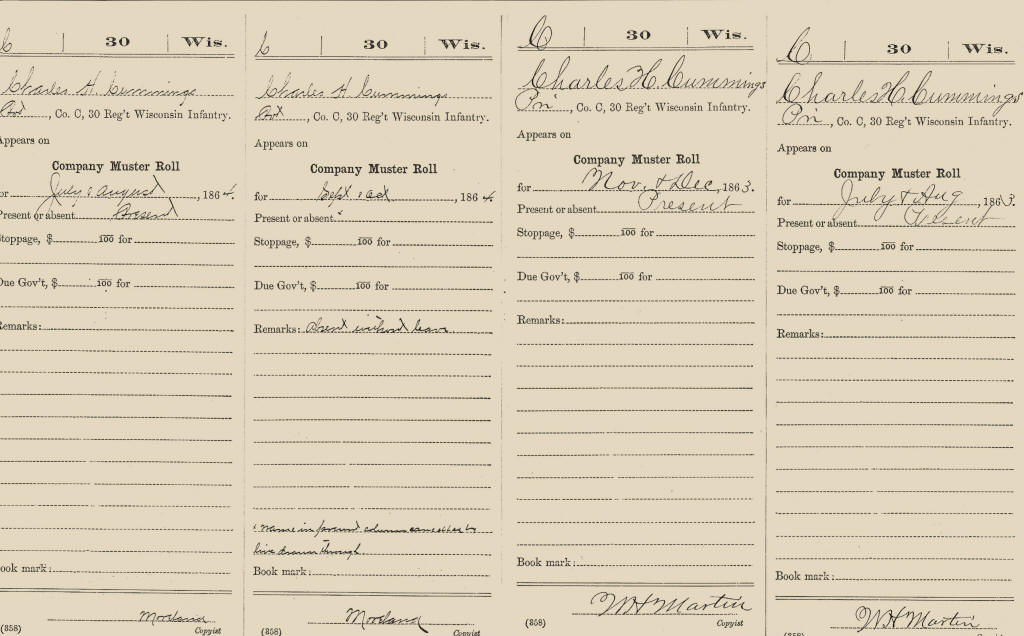 C | 30 | Wis.
Charles H. Cummings
Pvt, Co. C, 30 Reg't Wisconsin Infantry.
Appears on
Company Muster Roll
for July & August, 1864.
Present or absent Present
Stoppage, $ 100 for
Due Gov't, $ 100 for
Remarks:
Book mark:
Moreland
(358) Copyist
C | 30 | Wis.
Charles H Cummings
Pvt, Co. C, 30 Reg't Wisconsin Infantry.
Appears on
Company Muster Roll
for Sept & Oct, 1864
Present or absent
Stoppage, $ 100 for
Due Gov't, $ 100 for
Remarks: Absent without leave
Name in present column cancelled by
line drawn through
Book mark:
Moreland
(358) Copyist
C | 30 | Wis.
Charles H. Cummings
Pri, Co. C, 30 Reg't Wisconsin Infantry.
Appears on
Company Muster Roll
for Nov. & Dec, 1863.
Present or absent Present
Stoppage, $ 100 for
Due Gov't, $ 100 for
Remarks:
Book mark:
W H Martin
(358) Copyist
C | 30 | Wis.
Charles H. Cummings
Pri, Co. C, 30 Reg't Wisconsin Infantry.
Appears on
Company Muster Roll
for July & Aug, 1863.
Present or absent Present
Stoppage, $ 100 for
Due Gov't, $ 100 for
Remarks:
Book mark:
W H Martin
(358)